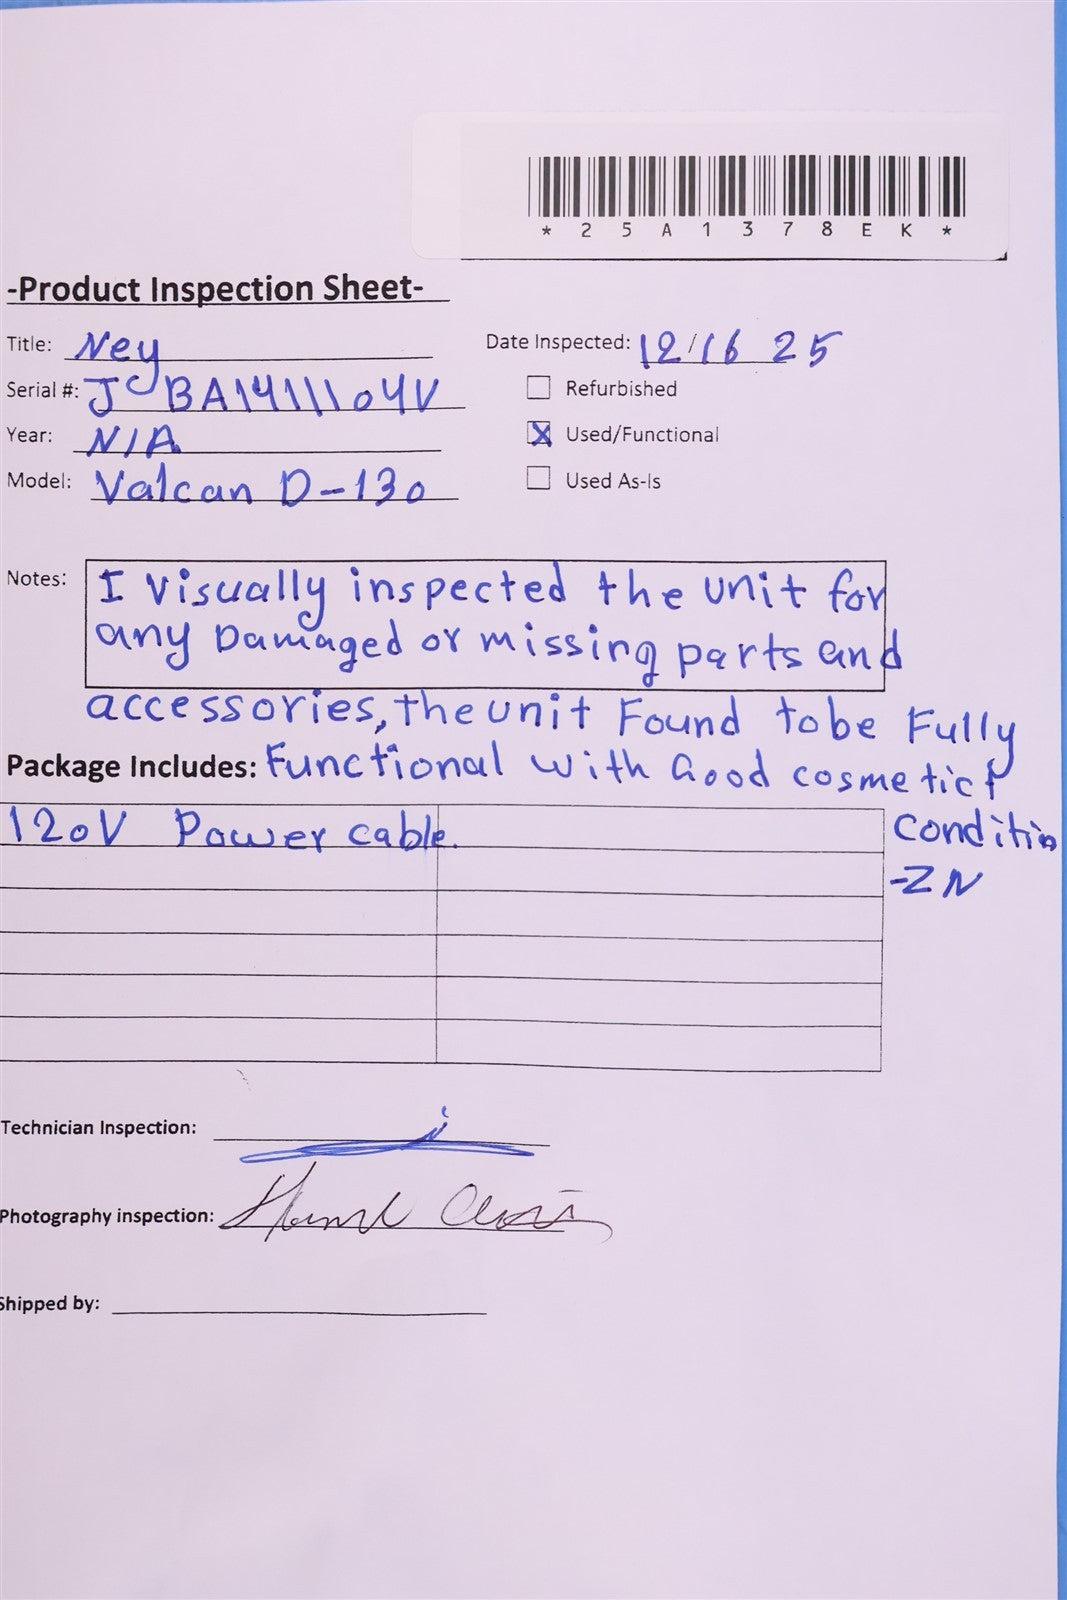 * 2 5 A 1 3 7 8 E K *
-Product Inspection Sheet-
Title: Ney
Date Inspected: 12/16 25
Serial #: JCBA1411104V
Refurbished
Year: N/A
X Used/Functional
Model: Valcan D-130
Used As-Is
Notes: I Visually inspected the unit for
any Damaged or missing parts and
accessories, the unit Found to be Fully
Package Includes: Functional with Good cosmetic
120V Power cable.
Conditio
-ZN
Technician Inspection:
Photography inspection:
Shipped by: